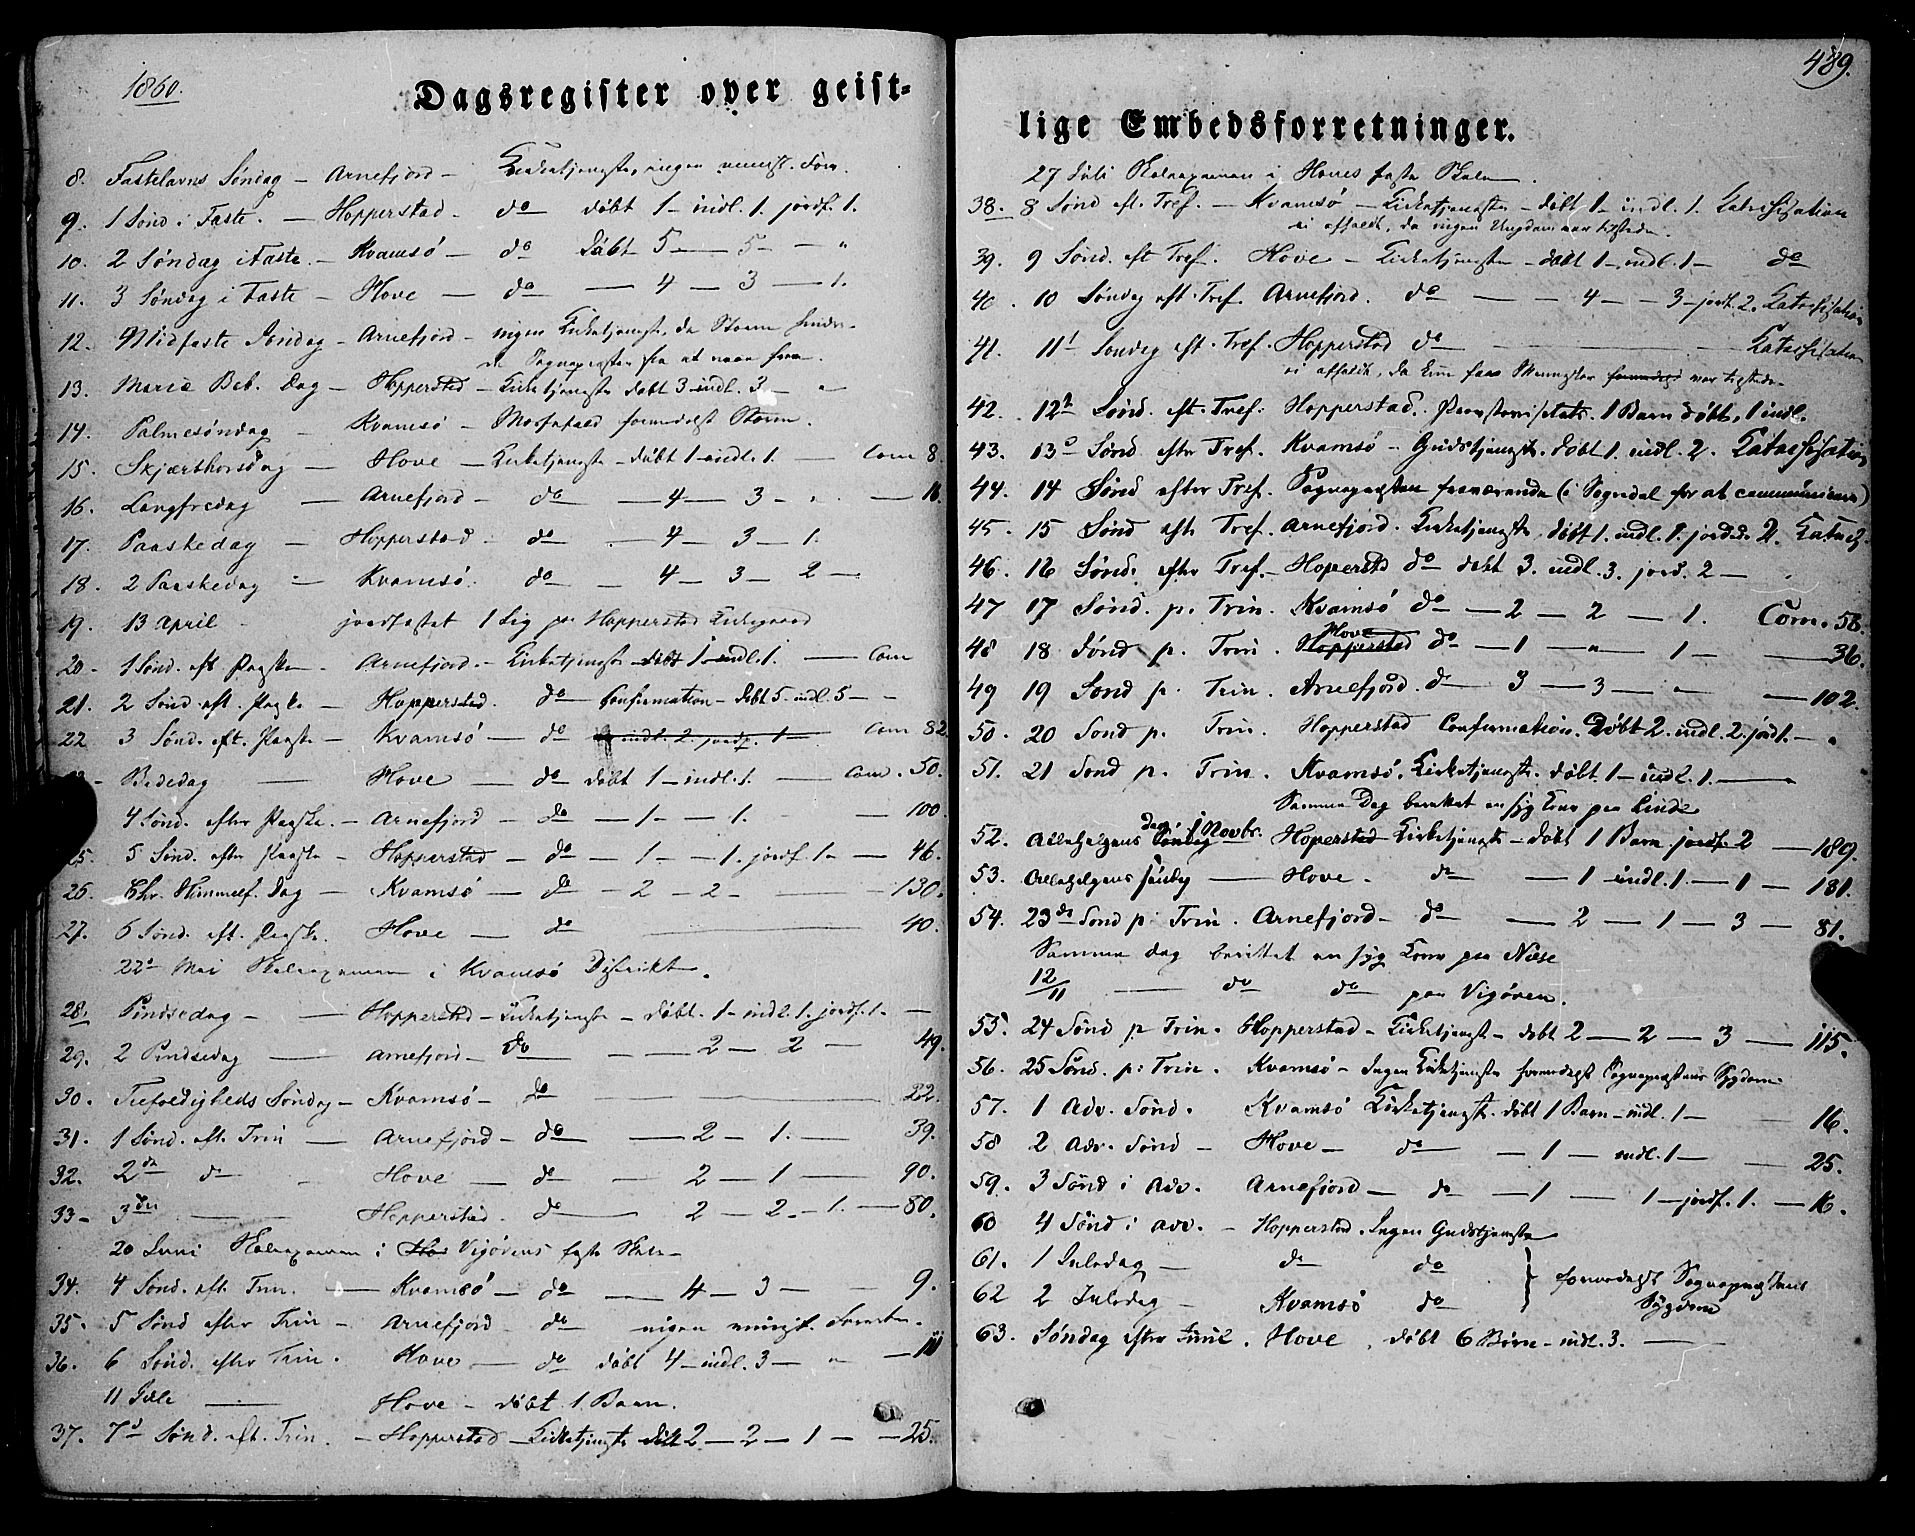 1860.
Dagsregister over geist-
8. Fastelavns Søndag - Arnefjord - Kirketjeneste, ingen minist. Forr.
9. 1 Sønd i Faste. - Hopperstad - do døbt 1 - indl. 1. jordf. 1.
10. 2 Søndag i Faste. - Kvamsö - do Døbt 5 - 5 - - "
11. 3 Søndag i Faste - Hove - do - 4 - 3 - 1.
12. Midfaste Søndag - Arnefjord - ingen Kirketjeneste, da Storm hindre-
de Sognepresten fra at naae frem.
13. Mariæ Beb. Dag - Hopperstad - Kirketjeneste døbt 3 - indl. 3 - "
14. Palmesøndag - Kvamsö - Messefald formedelst Storm.
15. Skjærthorsdag - Hove - Kirketjeneste - døbt 1 - indl. 1. - Com 8
16. Langfredag - Arnefjord - do - 4 - 3 - " - 16.
17. Paaskedag - Hopperstad - do - 4 - 3 - 1.
18. 2 Paaskedag - Kvamsö. do - 4 - 3 - 2 -
19. 13 April - jordfæstet 1 Lig paa Hopperstad Kirkegaard
20 - 1 Sønd. eft Paaske - Arnefjord. - Kirketjeneste døbt 1 - indl. 1. - Com
21. 2 Sønd eft. Paaske - Hopperstad. do Confirmation - døbt 5 - indl. 5 - -
22 3 Sønd. eft. Paaske - Kvamsö - do indl. 2. jordf. 1 - Com 82
Bededag - Hove - do døbt 1 - indl. 1. - Com. 50.
4 Sønd. efter Paaske. - Arnefjord - do - 1 - 1. - 100.
25. 5 Sønd. efter Paaske - Hopperstad - do - 1 - 1. jordf. 1 - 46.
26. Chr. Himmelf. Dag - Kvamsö - do - 2 - 2 - - 130.
27. 6 Sønd. eft. Paaske. Hove - do - 40.
22de Mai Skoleexamen i Kvamsö Distrikt.
28. Pindsedag - - Hopperstad - Kirketjeneste - døbt. 1 - indl. 1. jordf. 1. -
29. 2 Pindsedag - Arnefjord - do - - 2 - 2 - 49.
30. Trefoldigheds Søndag - Kvamsö - do - 22.
31. 1 Sønd. eft. Trin - Arnefjord - do - 2 - 1. - 39.
32. 2den do - Hove - do - 2 - 1 - 90.
33 - 3die - - Hopperstad. do - 2 - 2 - 1. - 80.
20 Juni Skoleexamen i Hov Vigørens faste Skole -
34. 4 Sønd. eft. Trin. - Kvamsö - do - 4 - 3 - - 9.
35. 5 Sønd efter Trin - Arnefjord - do ingen minist. Forretn.
36. 6 Sønd. efter Trin. Hove - do døbt 4 - indl. 3 - " -
11 Juli - Hove - døbt 1 Barn.
37. 7de Sønd. eft. Trin. - Hopperstad - Kirketjeneste døbt 2 - 2 - 1 - - 25.
489.
lige Embedsforretninger.
27 Juli Skoleexamen i Hoves faste Skole.
38. 8 Sønd eft. Tref. - Kvamsö - Kirketjeneste - døbt 1 - indl. 1. Katechisation
ei afholdt, da ingen Ungdom var tilstede.
39. 9 Sønd. eft Tref. Hove - Kirketjeneste - døbt 1 - indl. 1 - do
40. 10 Søndag eft. Tref. Arnefjord. do - - 4 - - 3 - jordf. 2. Katechisation
41. 11te Søndag eft. Tref. Hopperstad do - Katechisation
ei afholdt, da kun faae Mennesker var tilstede.
42. 12te Sønd. eft. Tref. Hopperstad. Provstevisitats. 1 Barn døbt, 1 indl.
43. 13de Sønd efter Tref. Kvamsö - Gudstjeneste. døbt 1. indl. 2. Katechisation
44. 14 Sønd efter Tref. Sognepresten fraværende (i Sogndal for at communicere)
45. 15 Sønd eft. Tref. Arnefjord. Kirketjeneste. døbt 1. indl. 1. jordf. 2. Katech.
46. 16 Sønd. efter Tref. - Hoperstad do døbt 3. indl. 3. jord. 2 -
47 17 Sønd. p. Trin. Kvamsö do - 2 - 2 - 1. Com. 58.
48 18 Sønd p. Trin. Hopperstad Hove do - 1 - " - 1 - - 36.
49 19 Sønd p. Trin. Arnefjord. do 3 - 3 - " - - 102.
50. 20 Sønd p. Trin. Hopperstad Confirmation. Døbt 2. indl. 2. jordf. - "
51. 21 Sønd p. Trin. Kvamsö. Kirketjeneste. døbt 1 - indl. 1. -
Samme Dag berettet en syg Kone paa Linde
52. Allehelgens Søndag Dag, 1 Novbr. Hoperstad Kirketjeneste - døbt 1 Barn jordf. 2 - 189.
53. Allehelgens Søndag - Hove. do - 1 indl. 1. - 1 - 181.
54. 23de Sønd p. Trin. Arnefjord - do - 2 - 1 - 3 - 81.
Samme dag berettet en syg Kone paa Næse
12/11 - do do paa Vigøren.
55. 24 Sønd p Trin. Hopperstad - Kirketjeneste - døbt 2 - 2 - 3 - 115.
56. 25 Sønd. p: Trin. Kvamsö - Ingen Kirketjeneste formedelst Sognepræstens Sygdom.
57. 1 Adv. Sønd. Kvamsö Kirketjeneste. døbt 1 Barn - indl. 1 - - 16.
58 2 Adv. Sønd - Hove - do - 1 - indl. 1 - - 25.
59. 3 Sønd i Adv. Arnefjord - do - 1 - 1 - jordf. 1. - 16.
60 4 Sønd i Adv. - Hopperstad. Ingen Gudstjeneste
61. 1 Juledag - do do } formedelst Sognepræstens
62 2 Juledag - Kvamsö do Sygdom
63. Søndag efter Juul. Hove, døbt 6 Børn - indl. 3. -